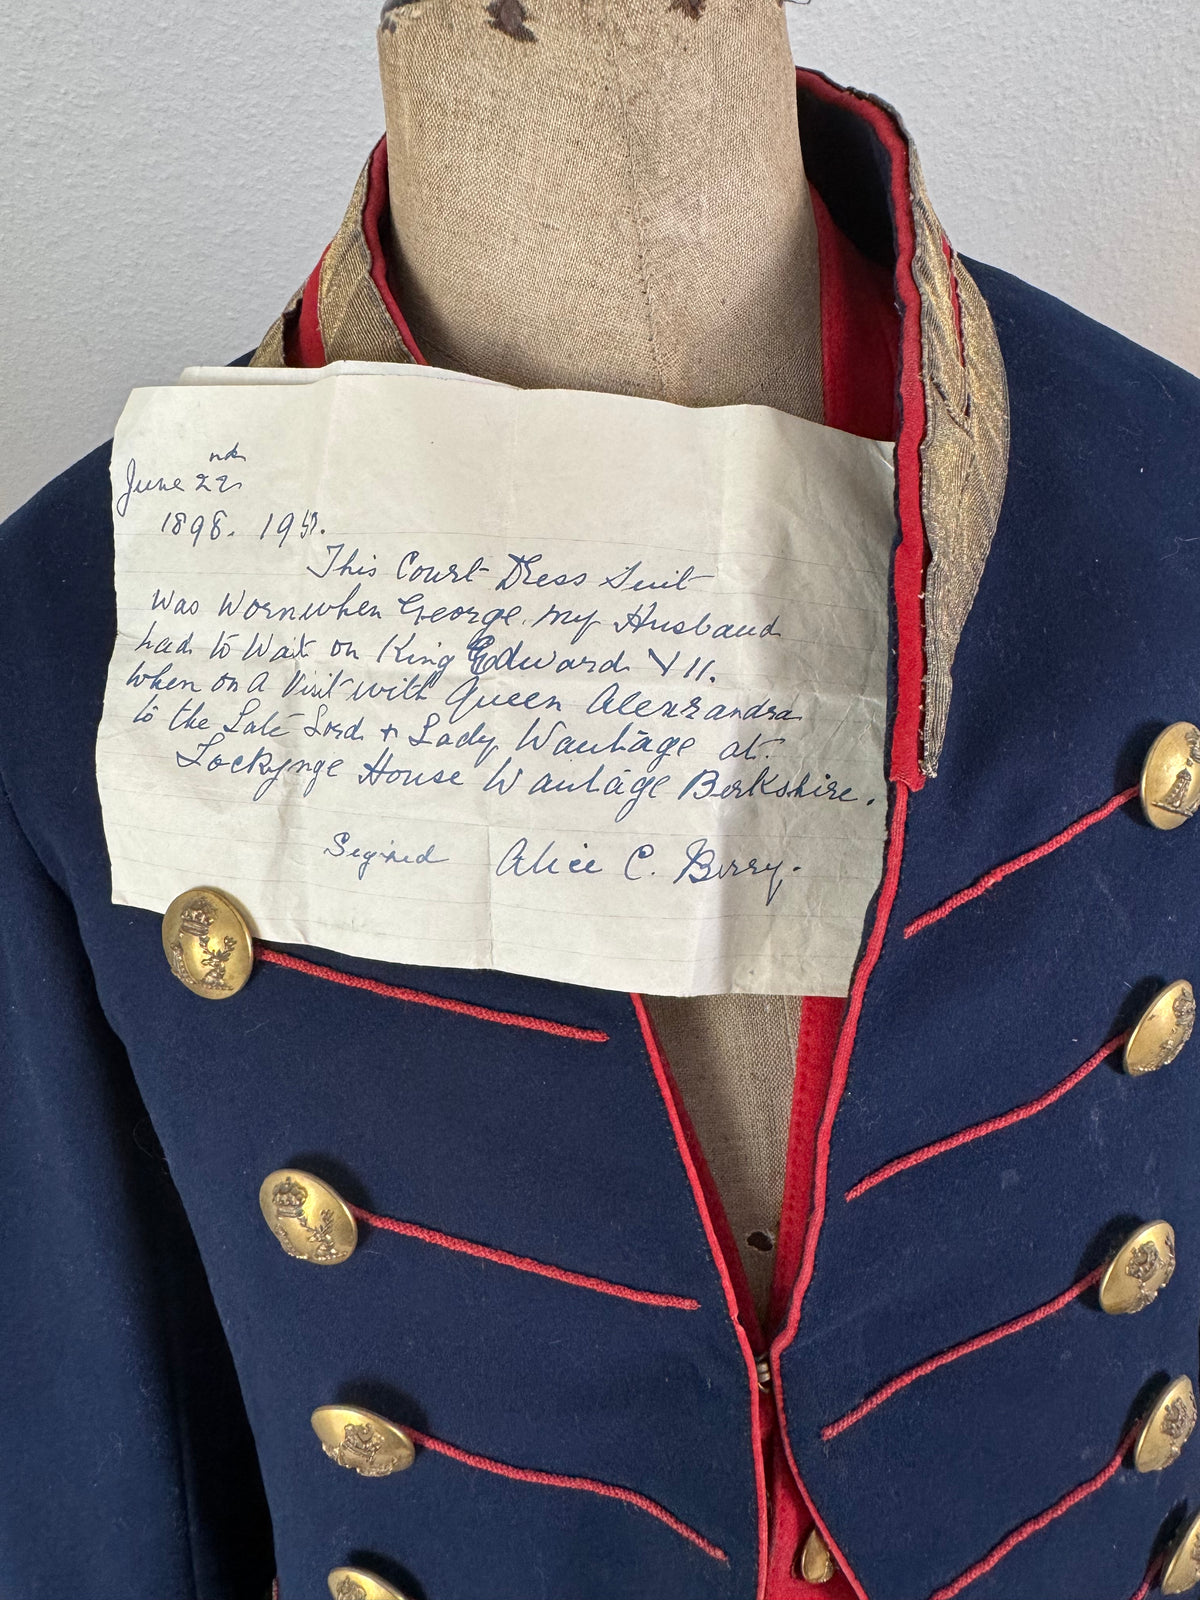 June 22nd
1898. 19
This Court Dress Suit
was Worn when George, my Husband
had to Wait on King Edward VII.
when on a Visit with Queen Alexzandra
to the Late Lord & Lady Wantage at.
Lockynge House Wantage Berkshire.
Segined Alice C. Berry.